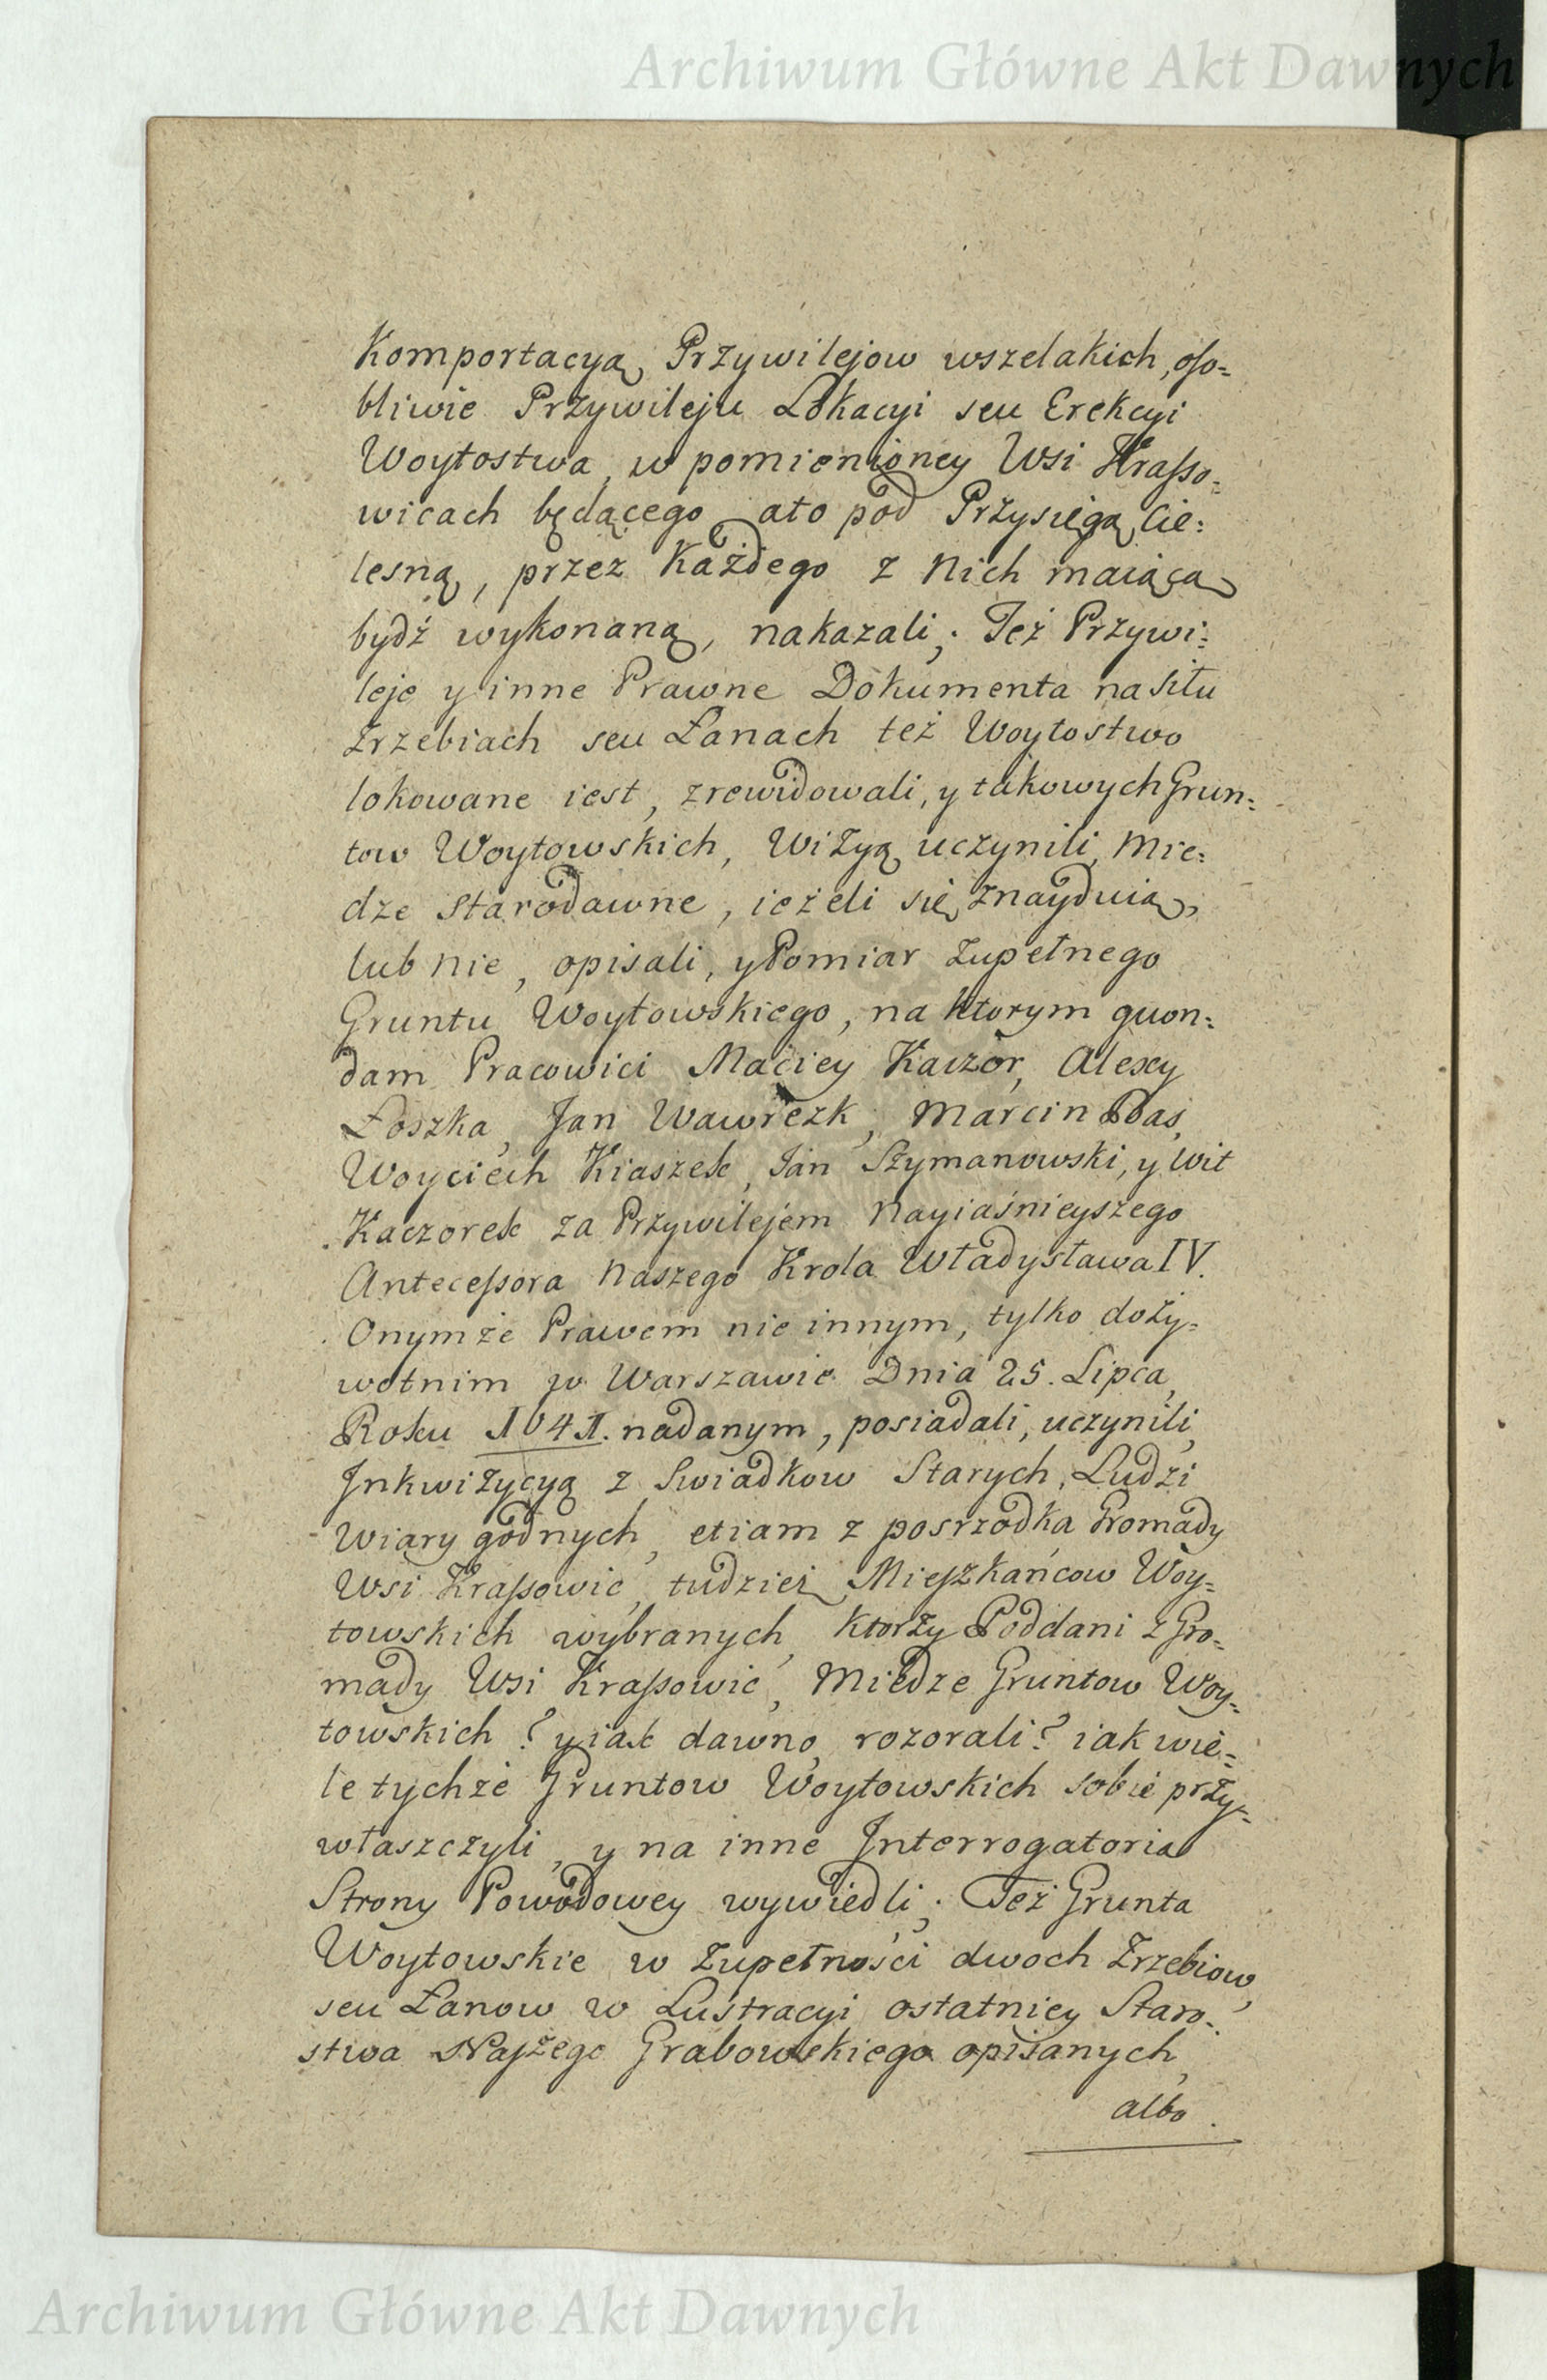 Archiwum Główne Akt Dawnych
Komportacyą Przywilejow wszelakich, oso=
bliwie Przywileju Lokacyi seu Erekcyi
Woytostwa, w pomienioney Wsi Krasso=
wicach będącego ato pod Przysięgą Cie=
lesną, przez Każdego z Nich maiącą
bydź wykonaną, nakazali; Też Przywi=
leje y inne Prawne Dokumenta na Siłu
Zrzebiach seu Łanach też Woytostwo
lokowane iest, zrewidowali, y takowych Grun=
tow Woytowskich, Wizyą uczynili, Mie=
dze starodawne, ieżeli się znayduią,
lub nie, opisali, y Pomiar zupełnego
Gruntu Woytowskiego, na ktorym quon=
dam Pracowici Maciey Kaczor, Alexy
Łoszka, Jan Wawrezk, Marcin Bas,
Woyciech Kiaszek, Jan Szymanowski, y Wit
Kaczorek za Przywilejem Nayiaśnieyszego
Antecessora Naszego Krola Władysława IV.
Onymże Prawem nie innym, tylko doży=
wotnim w Warszawie Dnia 25. Lipca,
Roku 1641. nadanym, posiadali, uczynili,
Inkwizycyą z Swiadkow Starych, Ludzi
Wiary godnych, etiam z posrzodka Gromady
Wsi Krassowic, tudziez Mieszkańcow Woy=
towskich wybranych, ktorzy Poddani z Gro=
mady Wsi Krassowic, Miedze Gruntow Woy=
towskich? y iak dawno, rozorali? iak wie=
le tychże Gruntow Woytowskich sobie przy=
właszczyli, y na inne Interrogatoria
Strony Powodowey wywiedli; Też Grunta
Woytowskie w zupełności dwoch Zrzebiow,
seu Łanow w Lustracyi ostatniey Staro=
stwa Naszego Grabowskiego opisanych,
albo
Archiwum Główne Akt Dawnych